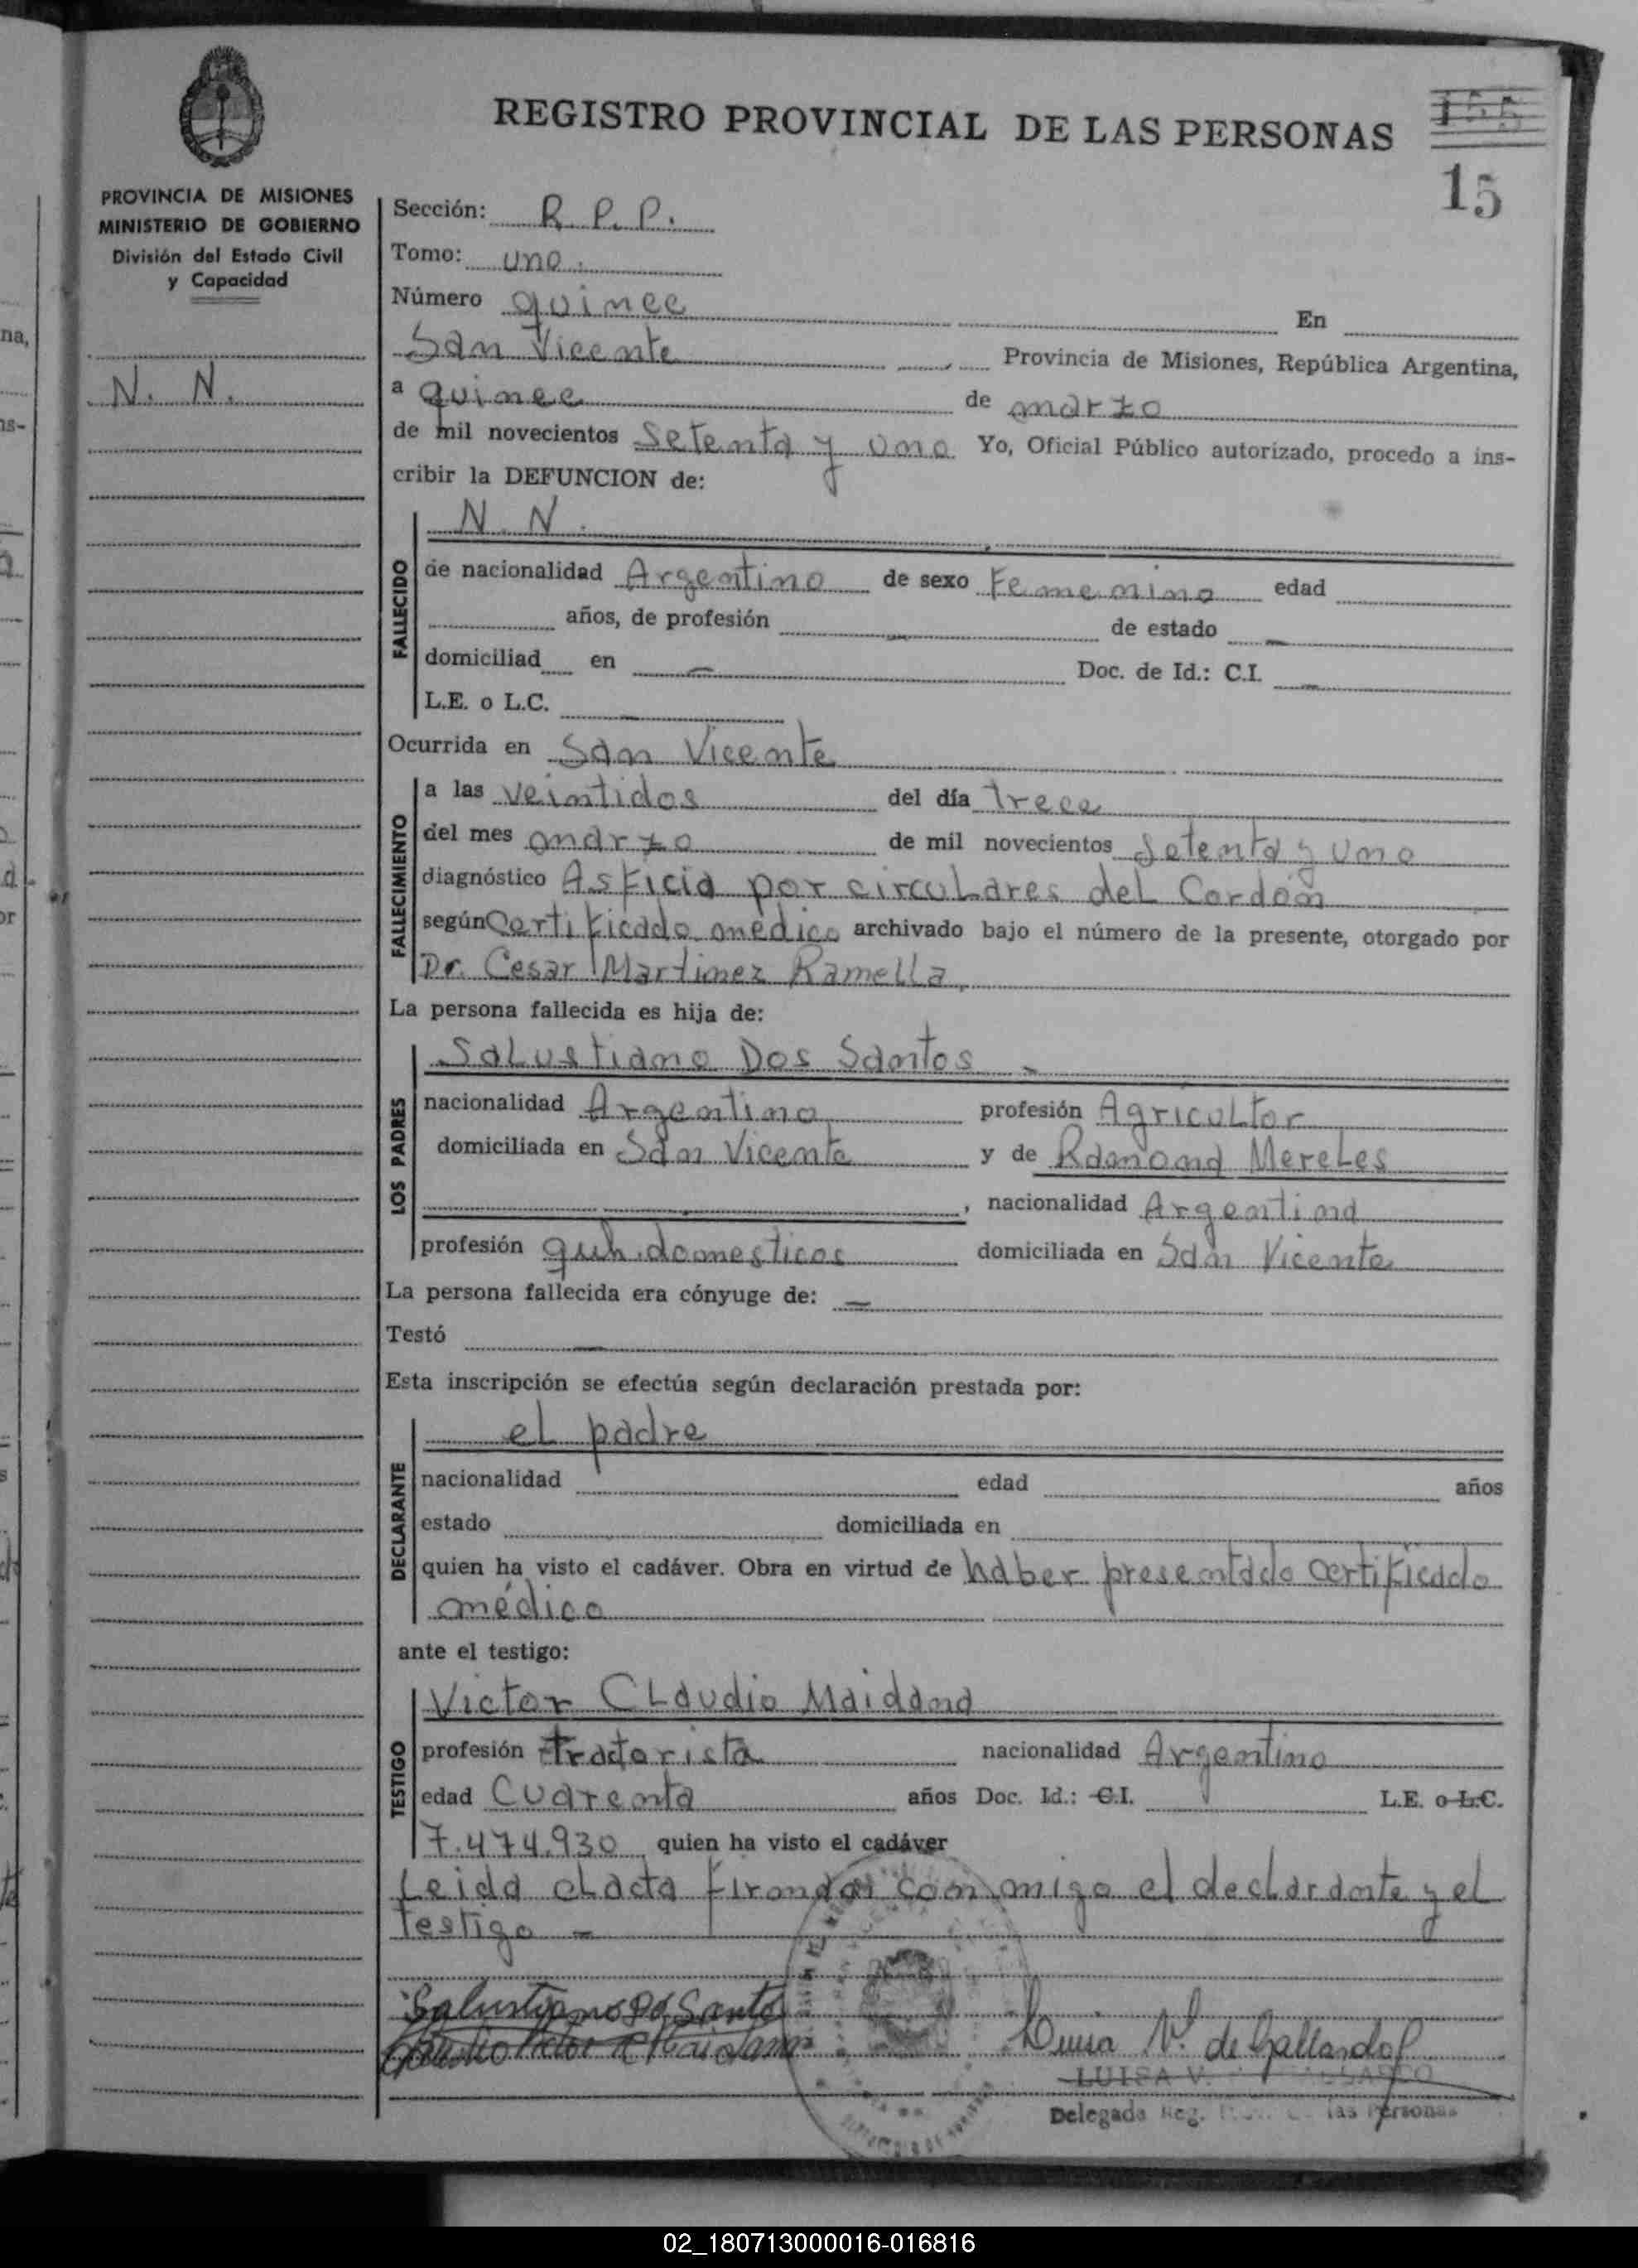 REGISTRO PROVINCIAL DE LAS PERSONAS
155
15
PROVINCIA DE MISIONES
MINISTERIO DE GOBIERNO
División del Estado Civil
y Capacidad
N. N.
Sección: R. P. P.
Tomo: uno.
Número quince En
San Vicente, Provincia de Misiones, República Argentina,
a quince de marzo
de mil novecientos setenta y uno Yo, Oficial Público autorizado, procedo a ins-
cribir la DEFUNCION de:
FALLECIDO
N. N.
de nacionalidad Argentino de sexo Femenino edad
años, de profesión — de estado —
domiciliad en — Doc. de Id.: C.I. —
L.E. o L.C. —
Ocurrida en San Vicente
FALLECIMIENTO
a las veintidos del día trece
del mes marzo de mil novecientos setenta y uno
diagnóstico Asficia por circulares del Cordón
según Certificado médico archivado bajo el número de la presente, otorgado por
Dr. Cesar Martinez Ramella,
La persona fallecida es hija de:
LOS PADRES
Salustiano Dos Santos -
nacionalidad Argentino profesión Agricultor
domiciliada en San Vicente y de Ramona Mereles
, nacionalidad Argentina
profesión queh. domesticos domiciliada en San Vicente
La persona fallecida era cónyuge de: —
Testó —
Esta inscripción se efectúa según declaración prestada por:
DECLARANTE
el padre
nacionalidad edad años
estado domiciliada en
quien ha visto el cadáver. Obra en virtud de haber presentado certificado
médico
ante el testigo:
TESTIGO
Victor Claudio Maidana
profesión tractorista nacionalidad Argentino
edad Cuarenta años Doc. Id.: C.I. L.E. o L.C.
7.474.930 quien ha visto el cadáver
Leida el acta firman con migo el declarante y el
testigo -
Salustiano Do Santo
Luisa V. de Gallardo
LUISA V. GALLARDO
Delegada Reg. las Personas
02_180713000016-016816